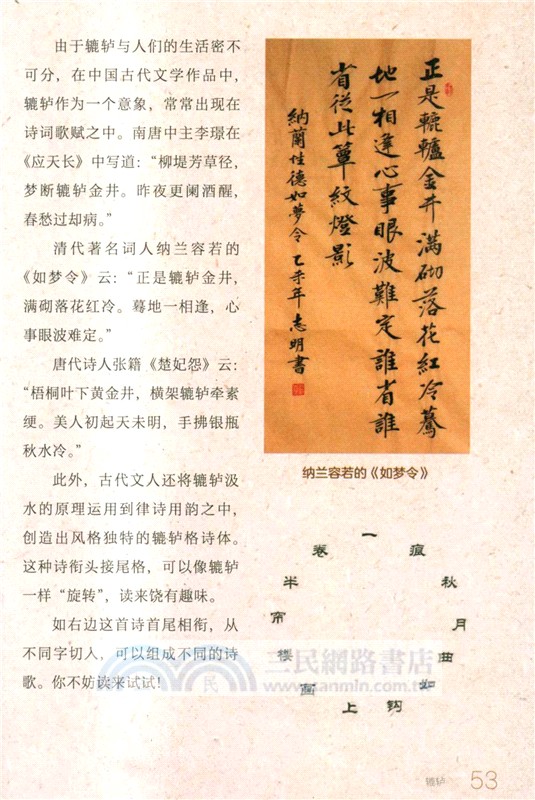 由于辘轳与人们的生活密不
可分，在中国古代文学作品中，
辘轳作为一个意象，常常出现在
诗词歌赋之中。南唐中主李璟在
《应天长》中写道：“柳堤芳草径，
梦断辘轳金井。昨夜更阑酒醒，
春愁过却病。”
清代著名词人纳兰容若的
《如梦令》云：“正是辘轳金井，
满砌落花红冷。蓦地一相逢，心
事眼波难定。”
唐代诗人张籍《楚妃怨》云：
“梧桐叶下黄金井，横架辘轳牵素
绠。美人初起天未明，手拂银瓶
秋水冷。”
此外，古代文人还将辘轳汲
水的原理运用到律诗用韵之中，
创造出风格独特的辘轳格诗体。
这种诗衔头接尾格，可以像辘轳
一样“旋转”，读来饶有趣味。
如右边这首诗首尾相衔，从
不同字切入，可以组成不同的诗
歌。你不妨读来试试！
正是轆轤金井滿砌落花紅冷驀
地一相逢心事眼波難定誰省誰
省從此簟紋燈影
納蘭性德如夢令 乙未年 志明書
纳兰容若的《如梦令》
一
痕
秋
月
曲
如
钩
上
画
楼
帘
半
卷
民
三民網路書店
www.sanmin.com.tw
辘轳 53